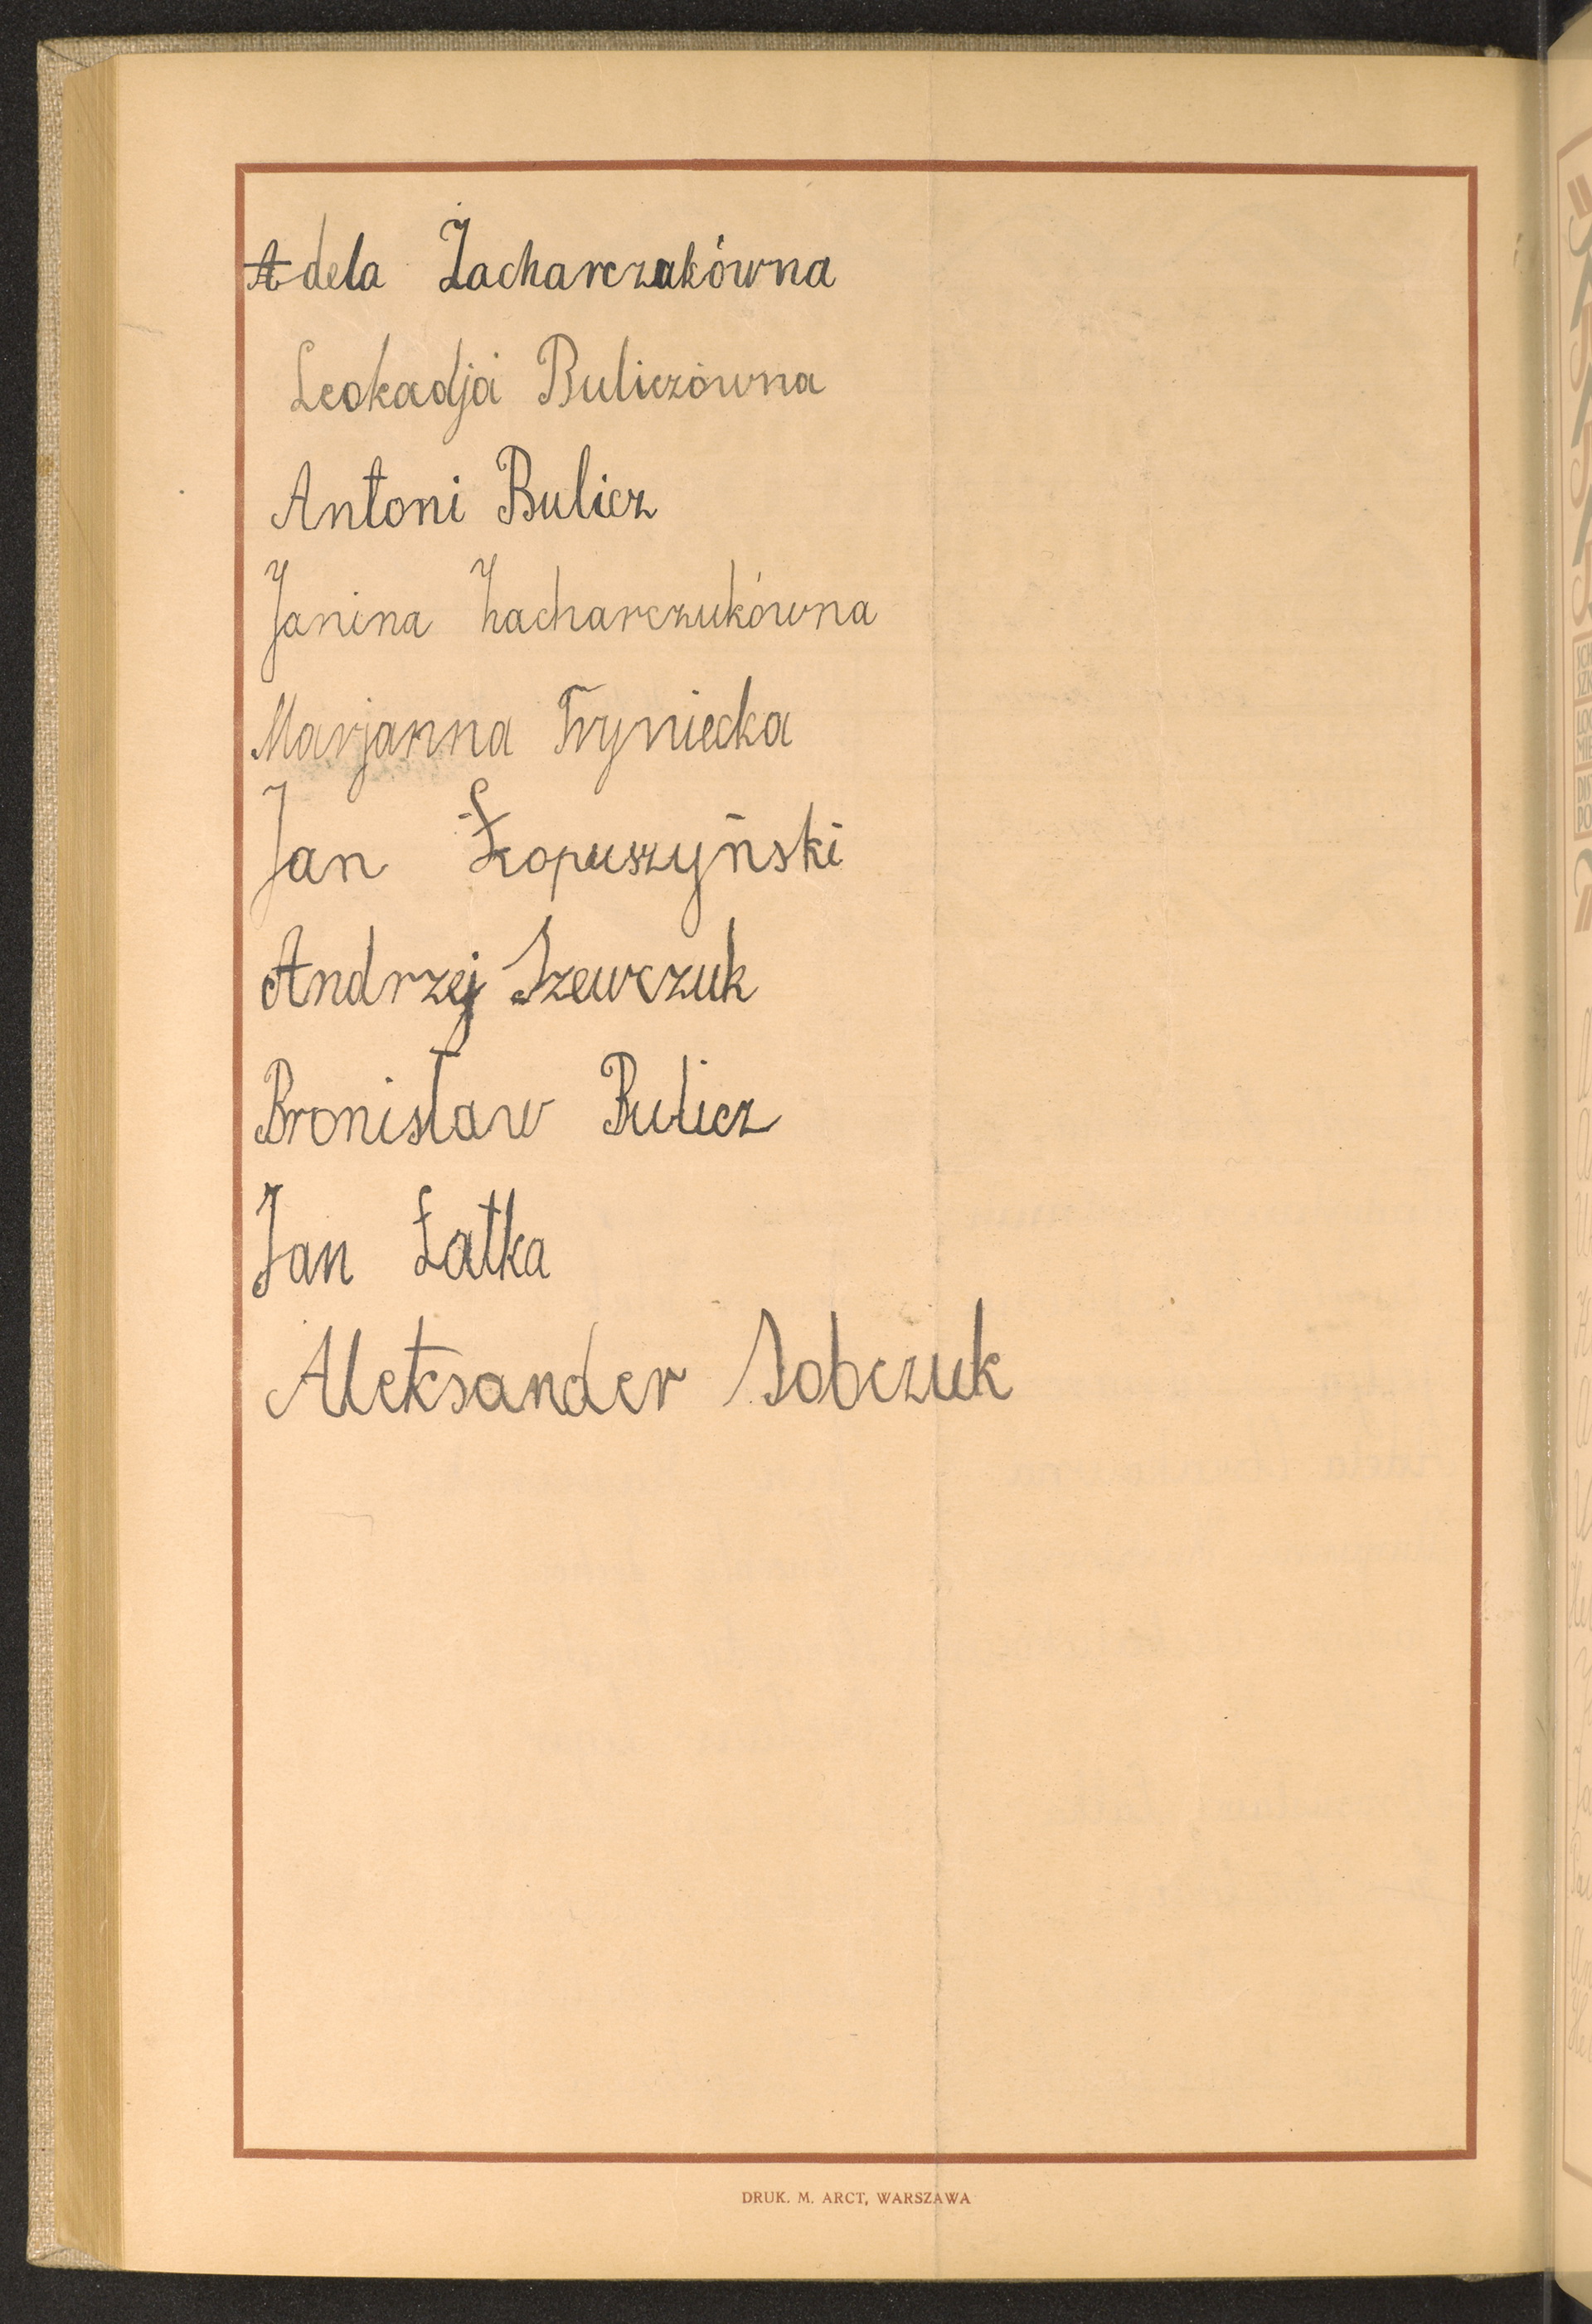 Adela Zacharczukówna
Leokadja Buliczówna
Antoni Bulicz
Janina Zacharczukówna
Marjanna Tryniecka
Jan Łopuszyński
Andrzej Szewczuk
Bronisław Bulicz
Jan Łatka
Aleksander Sobczuk
DRUK. M. ARCT, WARSZAWA